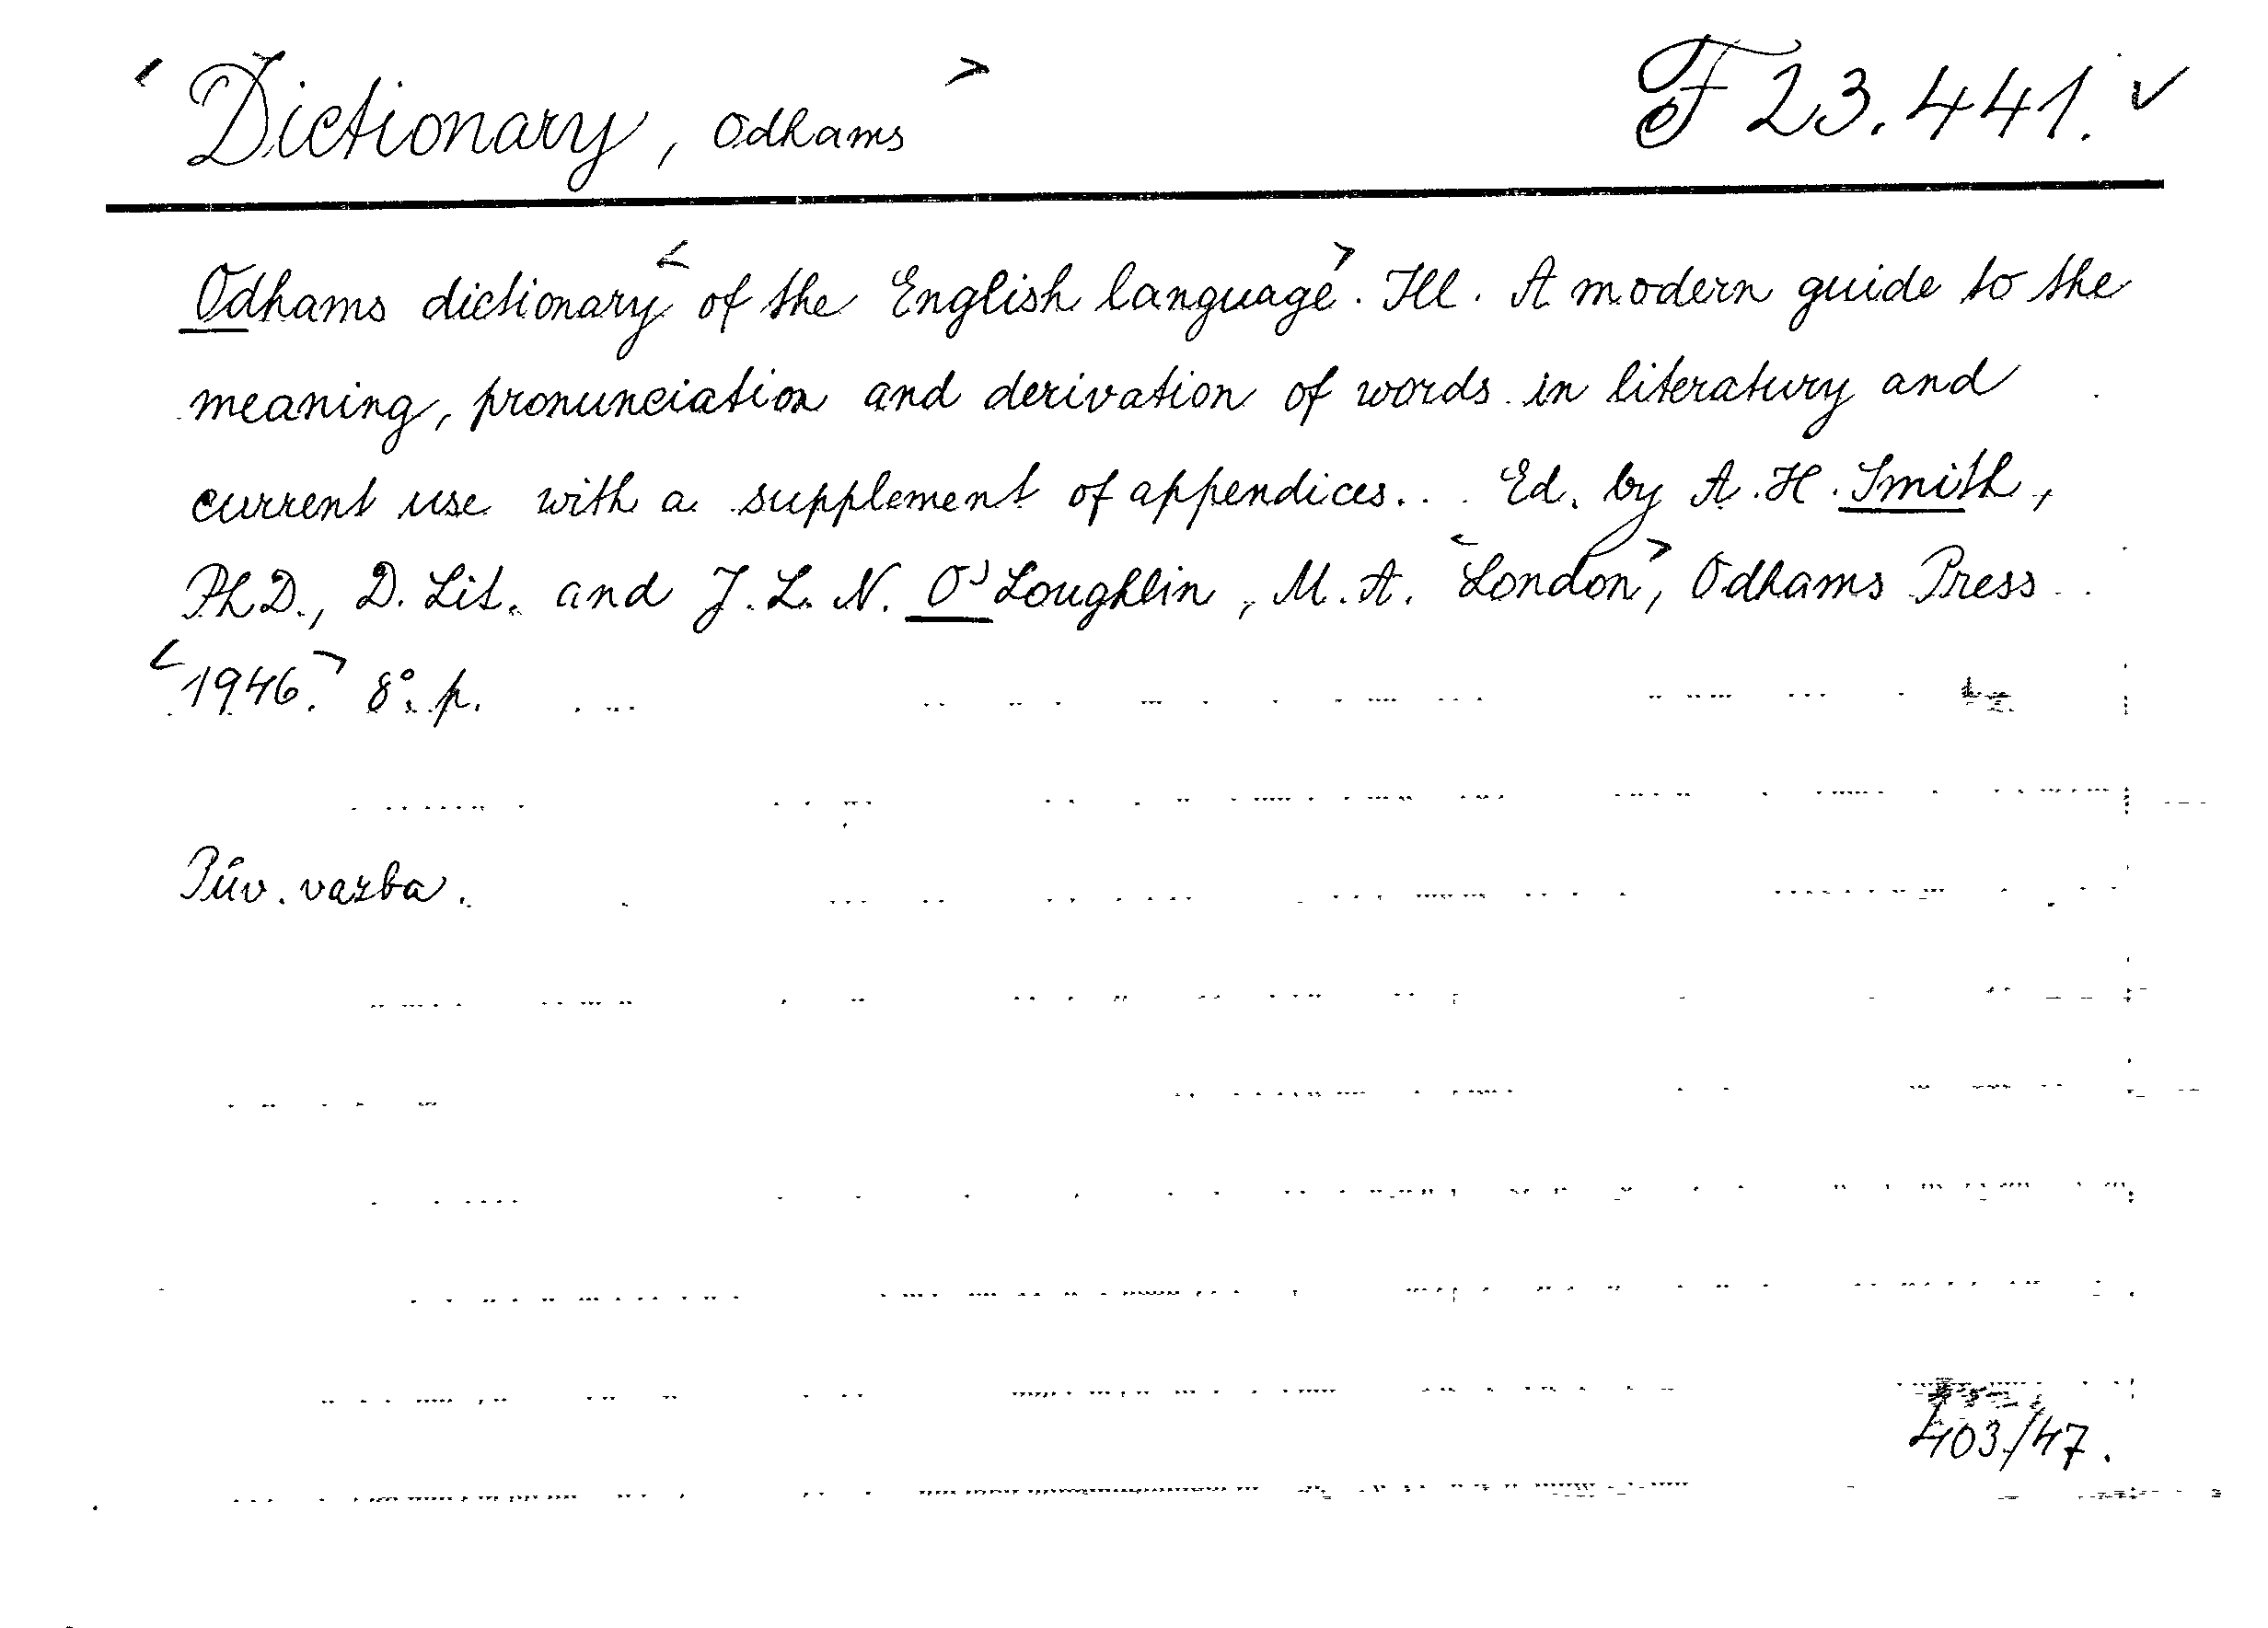 < Dictionary, Odhams > F 23.441. ✓
Odhams dictionary < of the English language >. Ill. A modern guide to the
meaning, pronunciation and derivation of words in literatury and
current use with a supplement of appendices... Ed. by A. H. Smith,
Ph.D., D. Lit. and J. L. N. O'Loughlin, M. A. < London >, Odhams Press
< 1946. > 8°. p.
Pův. vazba.
403/47.